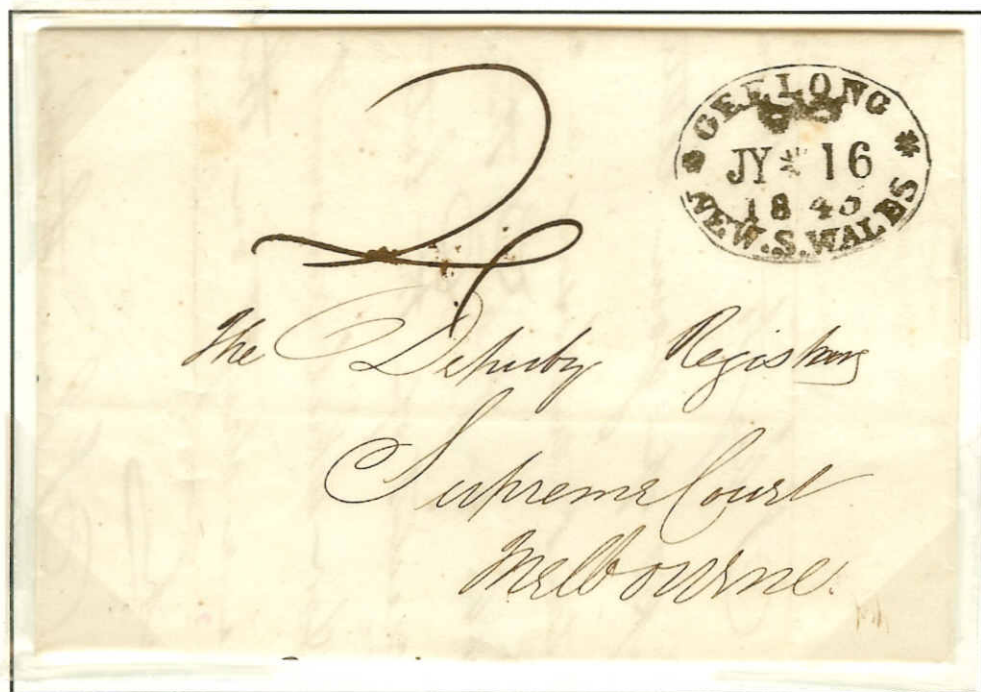 2
GEELONG
JY * 16
NEW.S.WALES
The Deputy Registrar
Supreme Court
Melbourne.